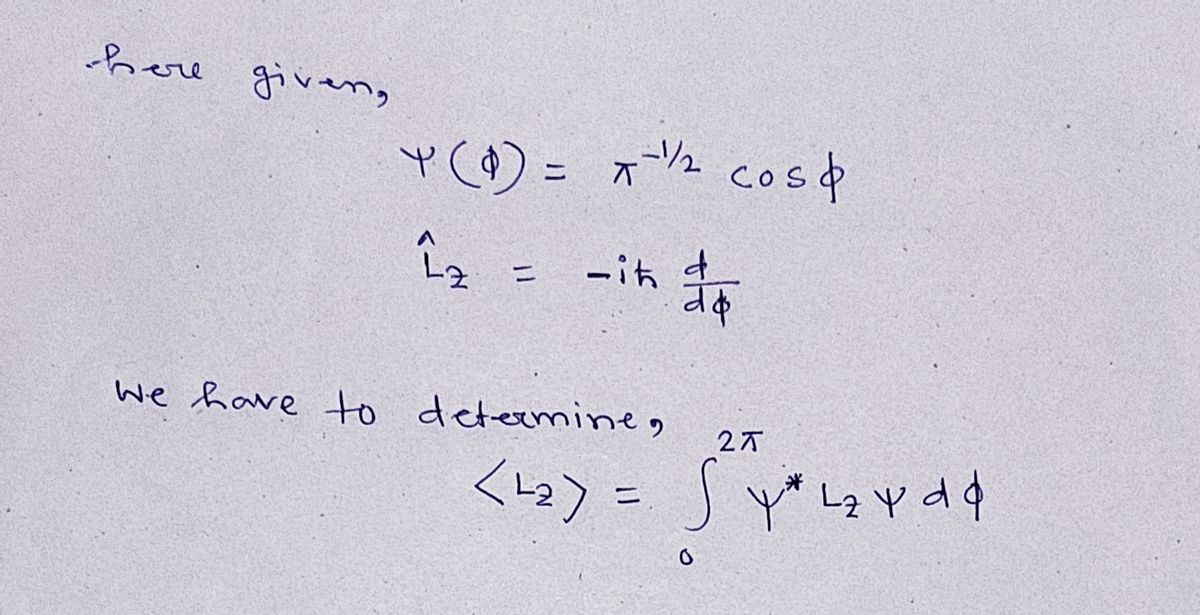 here given,
ψ(ϕ) = π^{-1/2} cosϕ
L̂z = -iħ d/dϕ
We have to determine,
⟨Lz⟩ = ∫₀^{2π} ψ* Lz ψ dϕ